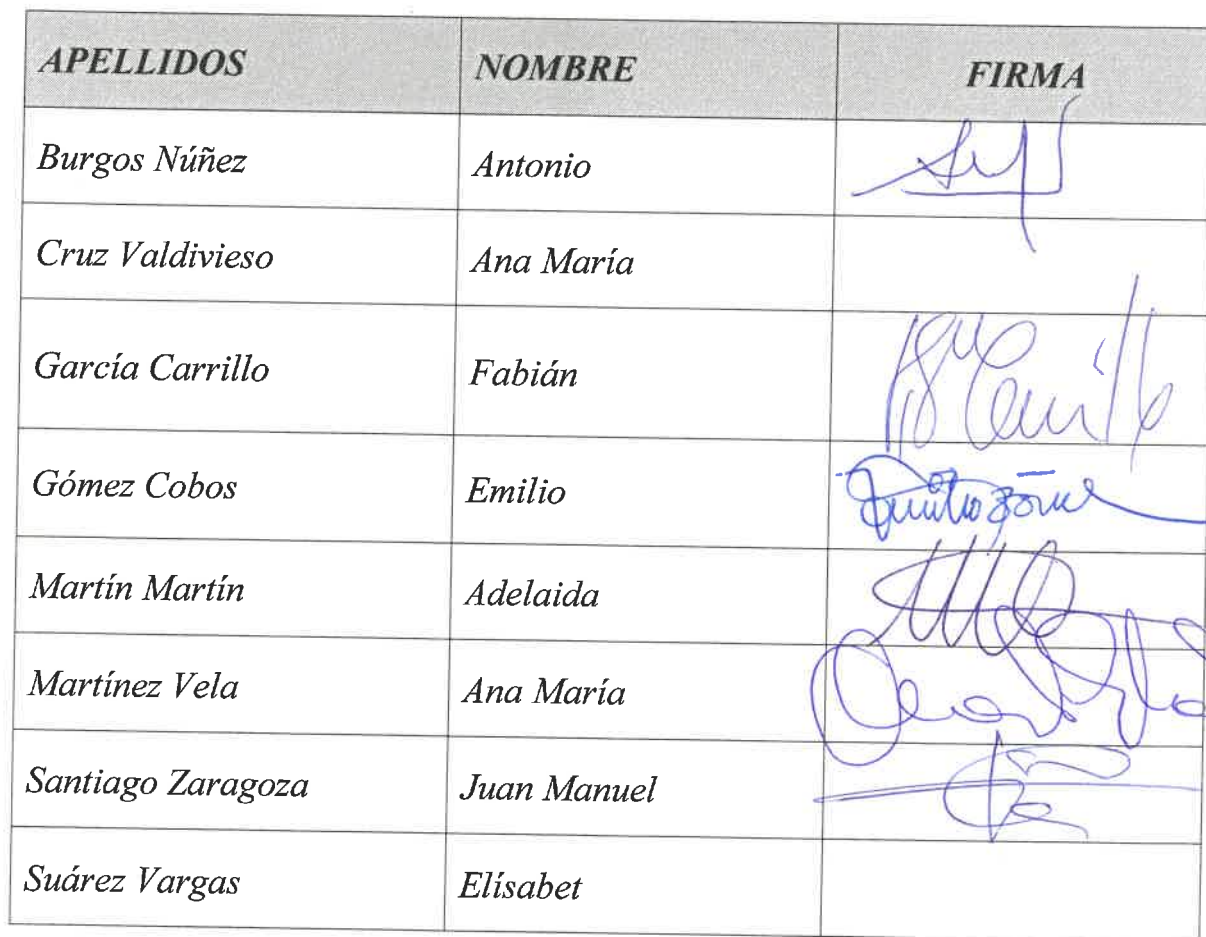 APELLIDOS NOMBRE FIRMA
Burgos Núñez Antonio
Cruz Valdivieso Ana María
García Carrillo Fabián
Gómez Cobos Emilio
Martín Martín Adelaida
Martínez Vela Ana María
Santiago Zaragoza Juan Manuel
Suárez Vargas Elísabet